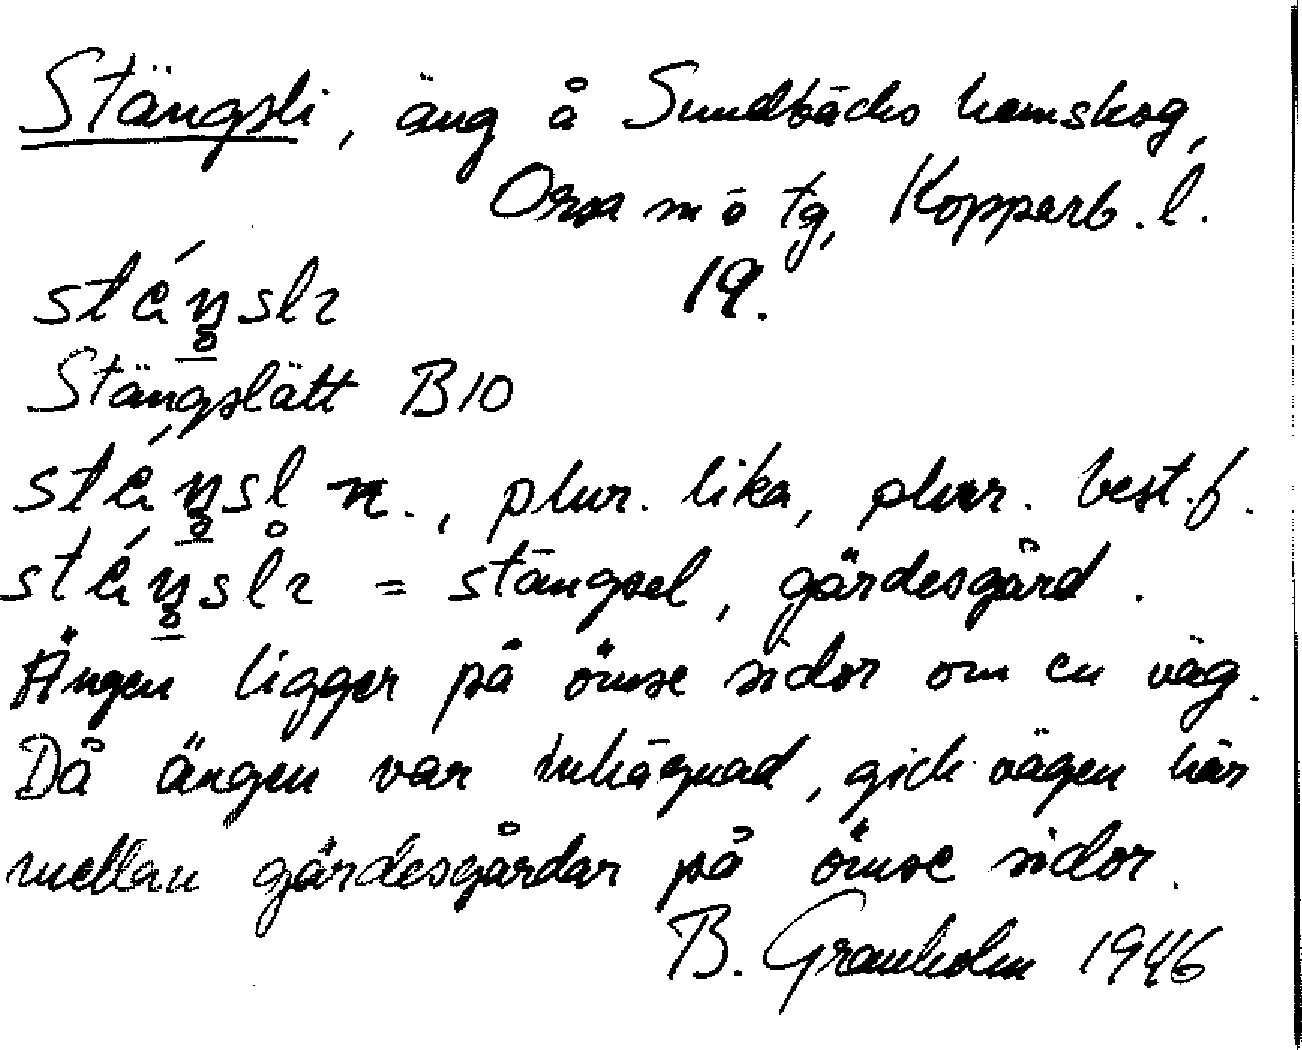 Stängsli, äng å Sundbäcks hemskog,
Orsa m o tg, Kopparb. l.
19.
Stängslätt B10
n., plur. lika, plur. best. f.
= stängsel, gärdesgård.
Ängen ligger på ömse sidor om en väg.
Då ängen var inhägnad, gick vägen här
mellan gärdesgårdar på ömse sidor.
B. Granholm 1946